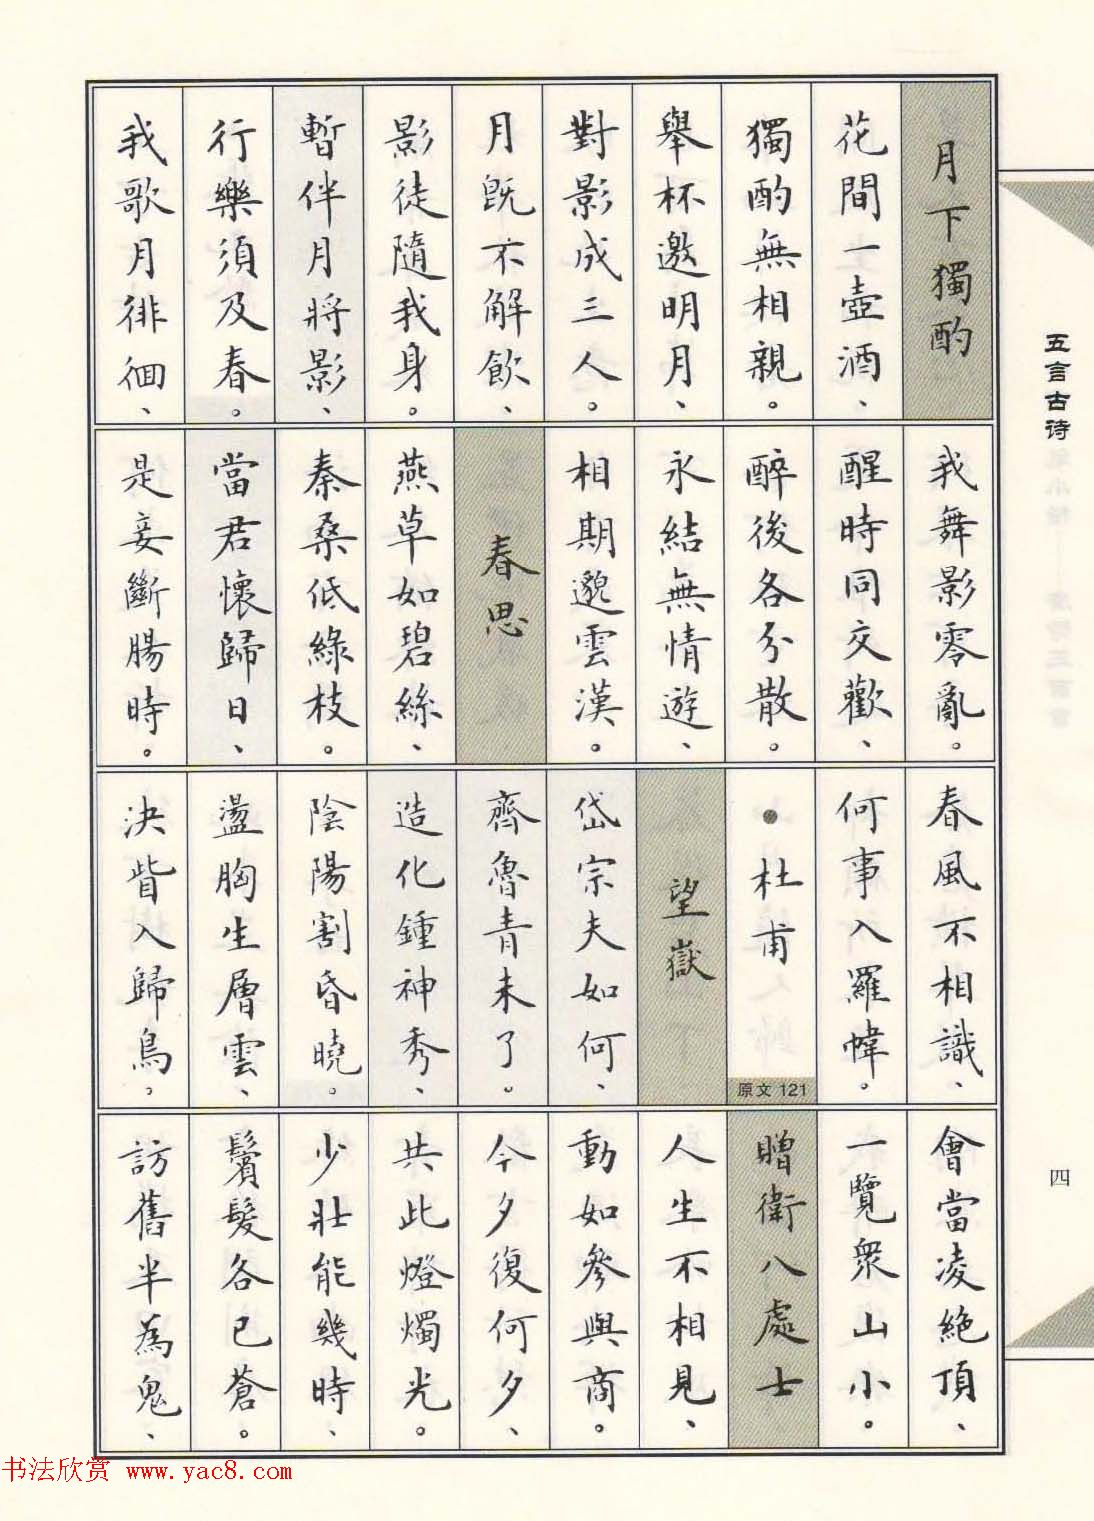 月下獨酌
花間一壺酒、
獨酌無相親。
舉杯邀明月、
對影成三人。
月既不解飲、
影徒隨我身。
暫伴月將影、
行樂須及春。
我歌月徘徊、
我舞影零亂。
醒時同交歡、
醉後各分散。
永結無情遊、
相期邈雲漢。
春思
燕草如碧絲、
秦桑低綠枝。
當君懷歸日、
是妾斷腸時。
春風不相識、
何事入羅幃。
●杜甫
原文 121
望嶽
岱宗夫如何、
齊魯青未了。
造化鍾神秀、
陰陽割昏曉。
盪胸生層雲、
決眥入歸鳥。
會當凌絕頂、
一覽衆山小。
贈衛八處士
人生不相見、
動如參與商。
今夕復何夕、
共此燈燭光。
少壯能幾時、
鬢髮各已蒼。
訪舊半為鬼、
五言古诗
四
书法欣赏 www.yac8.com